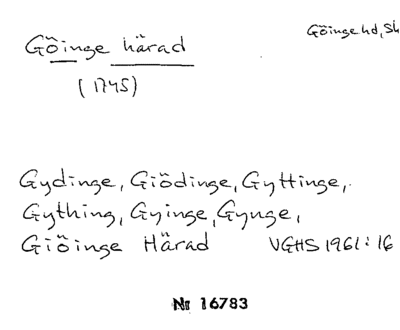 Göinge hd, Sk
Göinge härad
(1745)
Gydinge, Giödinge, Gyttinge,
Gything, Gyinge, Gynge,
Giöinge Härad VGHS 1961: 16
Nr 16783